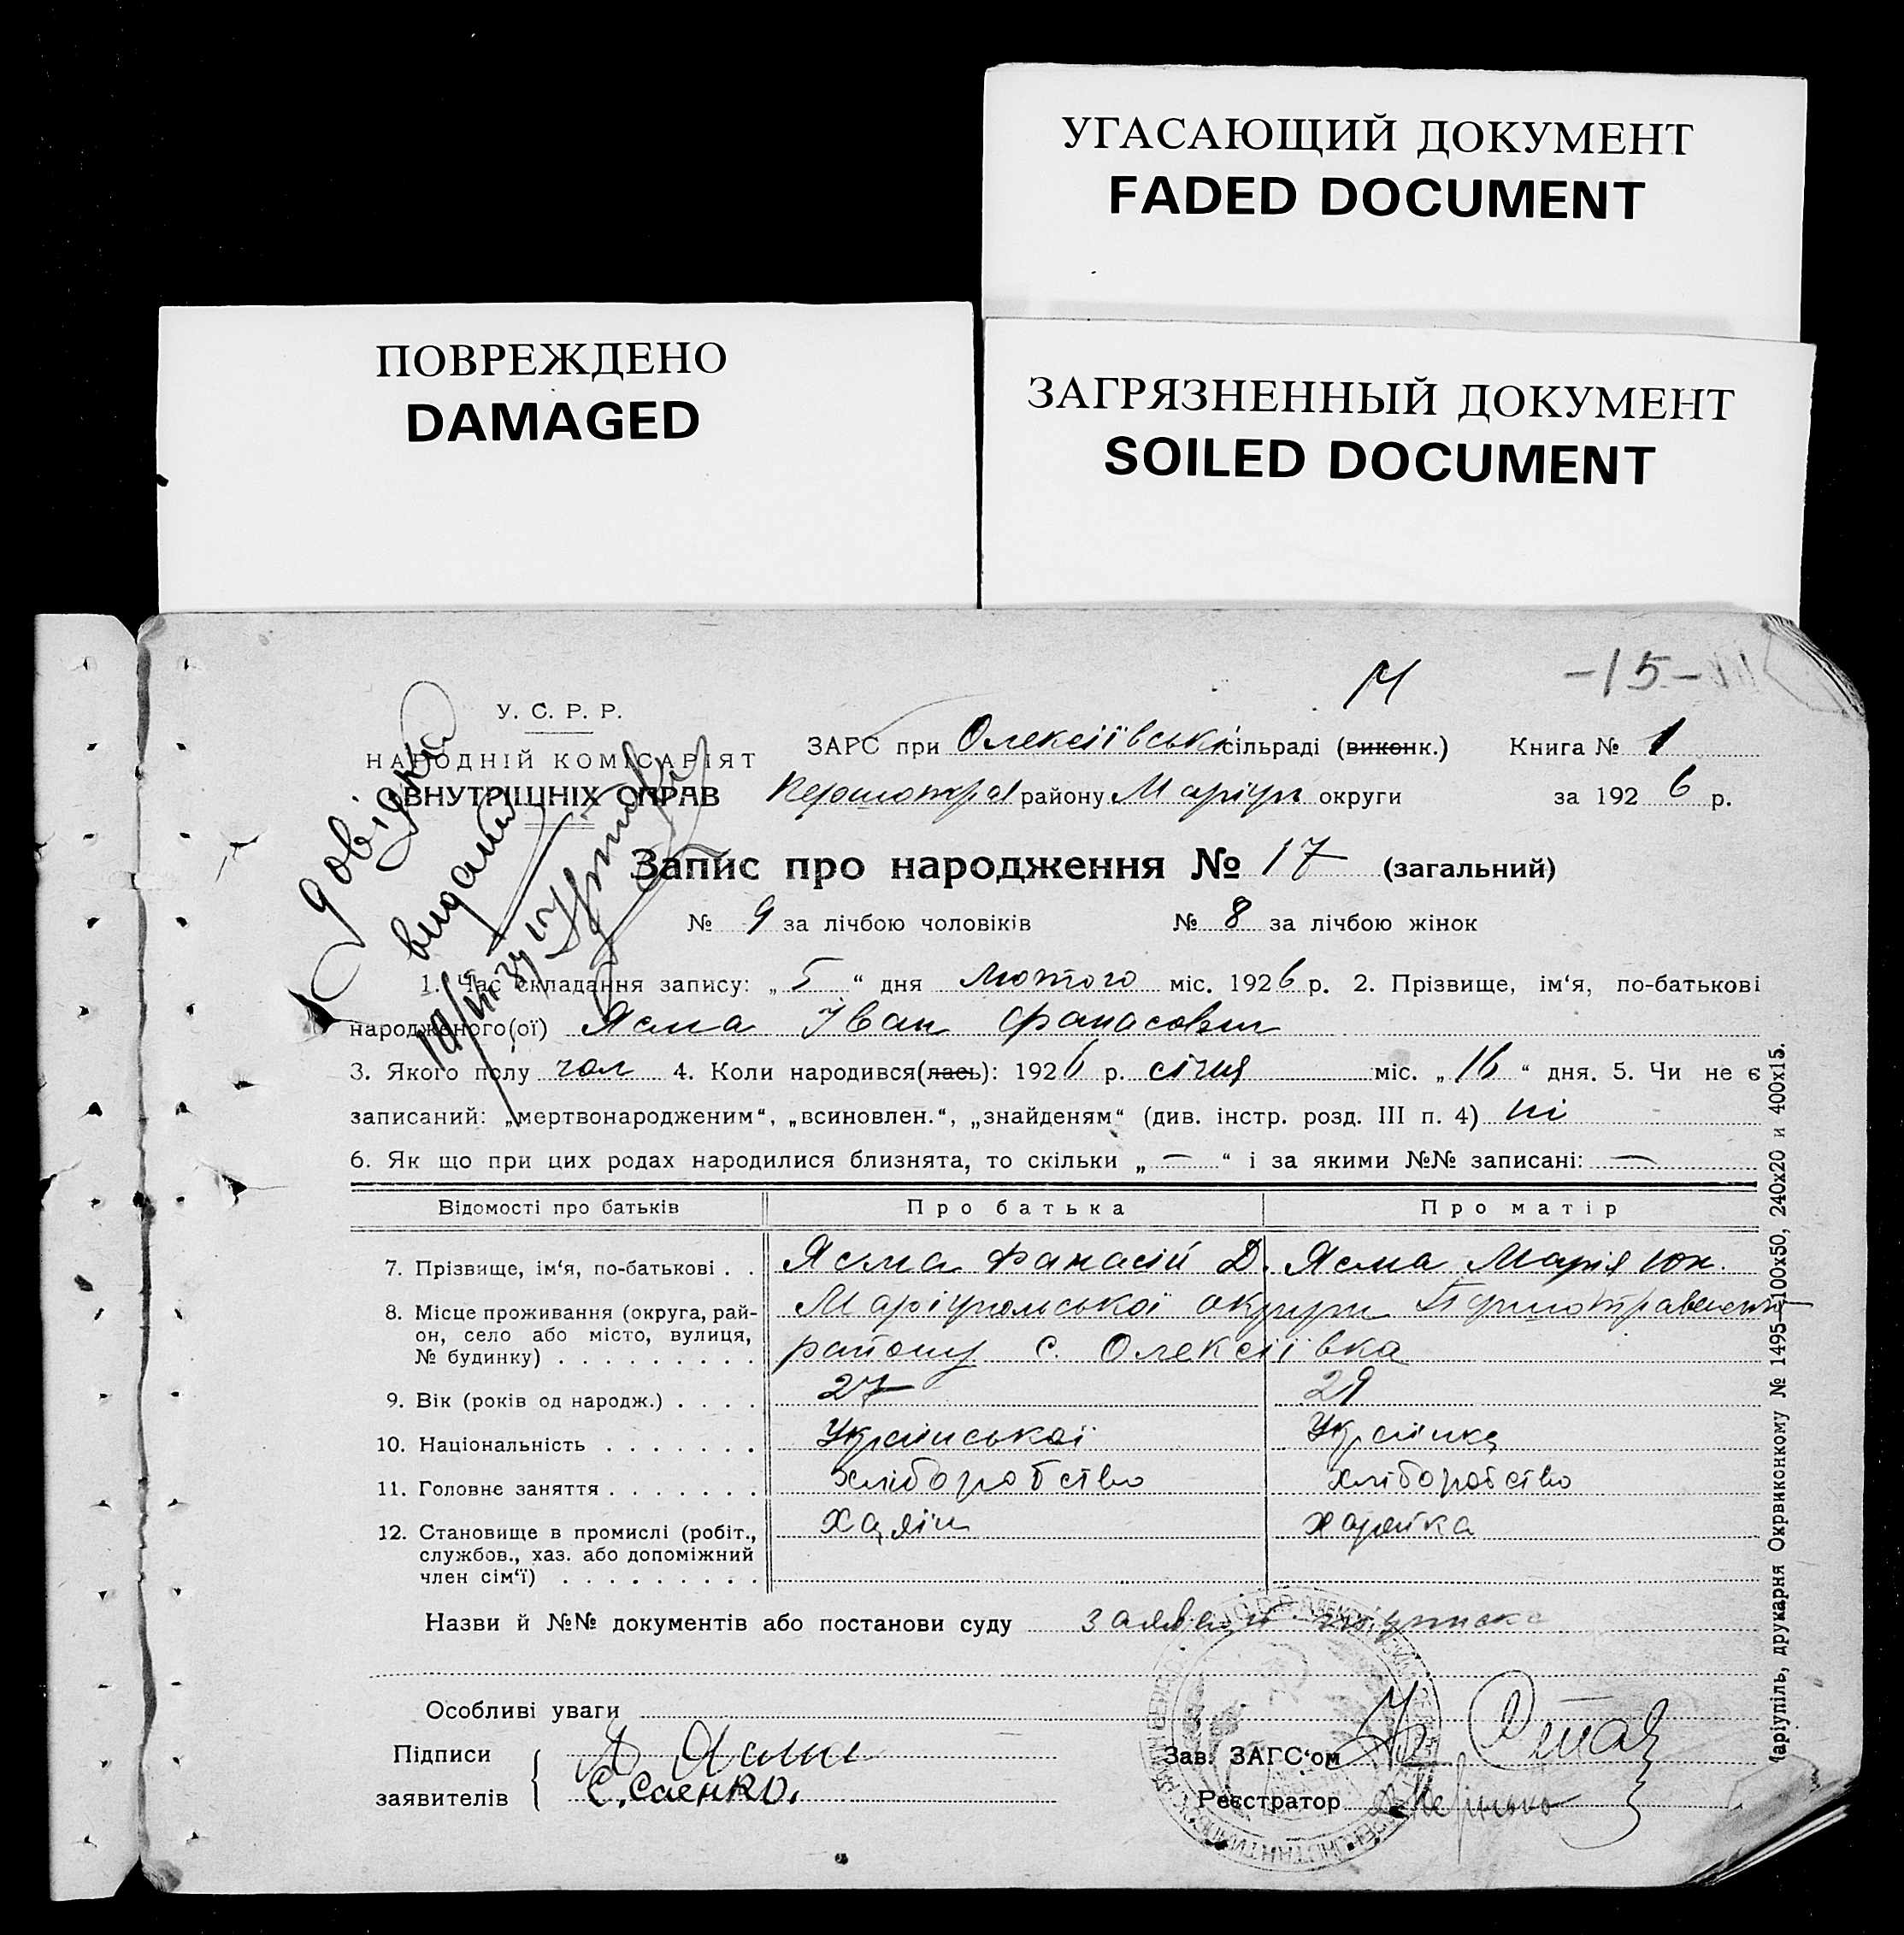 УГАСАЮЩИЙ ДОКУМЕНТ
FADED DOCUMENT
ПОВРЕЖДЕНО
DAMAGED
ЗАГРЯЗНЕННЫЙ ДОКУМЕНТ
SOILED DOCUMENT
-15-
У. С. Р. Р.
НАРОДНІЙ КОМІСАРІЯТ
ВНУТРІШНІХ СПРАВ
ЗАГС при Олексіївській сільраді (виконк.) Книга № 1
Першотрав району Маріуп округи за 1926 р.
довідки
видано
Запис про народження № 17 (загальний)
№ 9 за лічбою чоловіків № 8 за лічбою жінок
1. Час складання запису: „ 5 “ дня Лютого міс. 1926 р. 2. Прізвище, ім‘я, по-батькові
народженого(ої) Ясма Іван Фанасович
3. Якого полу чол 4. Коли народився(лась): 1926 р. січня міс. „ 16 “ дня. 5. Чи не є
записаний: „мертвонародженим“, „всиновлен.“, „знайденям“ (див. інстр. розд. III п. 4) ні
6. Як що при цих родах народилися близнята, то скільки „ — “ і за якими №№ записані: —
Відомості про батьків Про батька Про матір
7. Прізвище, ім‘я, по-батькові . . Ясма Фанасій Д. Ясма Марія Юх.
8. Місце проживання (округа, рай- Маріупольської округи Першотравенськ
он, село або місто, вулиця, району с. Олексіївка
№ будинку) . . . . . . . . .
9. Вік (років од народж.) . . . . 27 29
10. Національність . . . . . . . Української Українка
11. Головне заняття . . . . . . . хліборобство хліборобство
12. Становище в промислі (робіт., Хазяїн хазяйка
службов., хаз. або допоміжний
член сім‘ї) . . . . . . . . .
Назви й №№ документів або постанови суду заява й підписка
Особливі уваги
Підписи Я Ясма Зав. ЗАГС‘ом
заявителів С. Саенко. Реєстратор
Маріупіль, друкарня Окрвиконкому № 1495—100х50, 240х20 и 400х15.